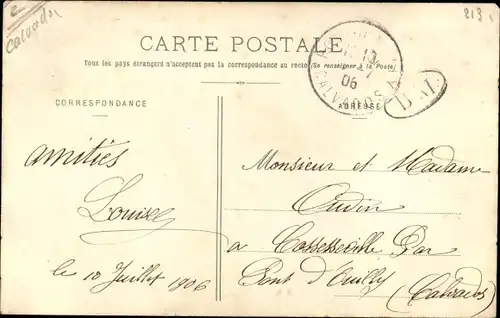 Calvados
213
CARTE POSTALE
Tous les pays étrangers n'acceptent pas la correspondance au recto (Se renseigner à la Poste)
CORRESPONDANCE
ADRESSE
06
CALVADOS
amitiés
Louise
le 10 Juillet 1906
Monsieur et Madame
Oudin
a Cossesseville Par
Pont d'Ouilly
(Calvados)